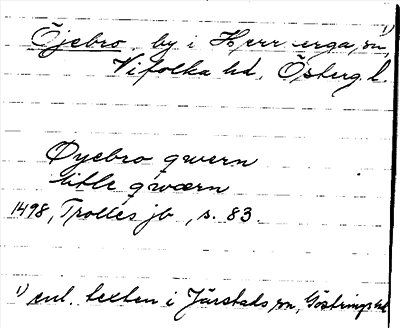 Öjebro by i Herrberga sn, 1)
Vifolka hd, Österg. l.
Øyebro qwern
litle qwærn
1498, Trolles jb, s. 83.
1) enl. texten i Järstads sn, Göstrings hd